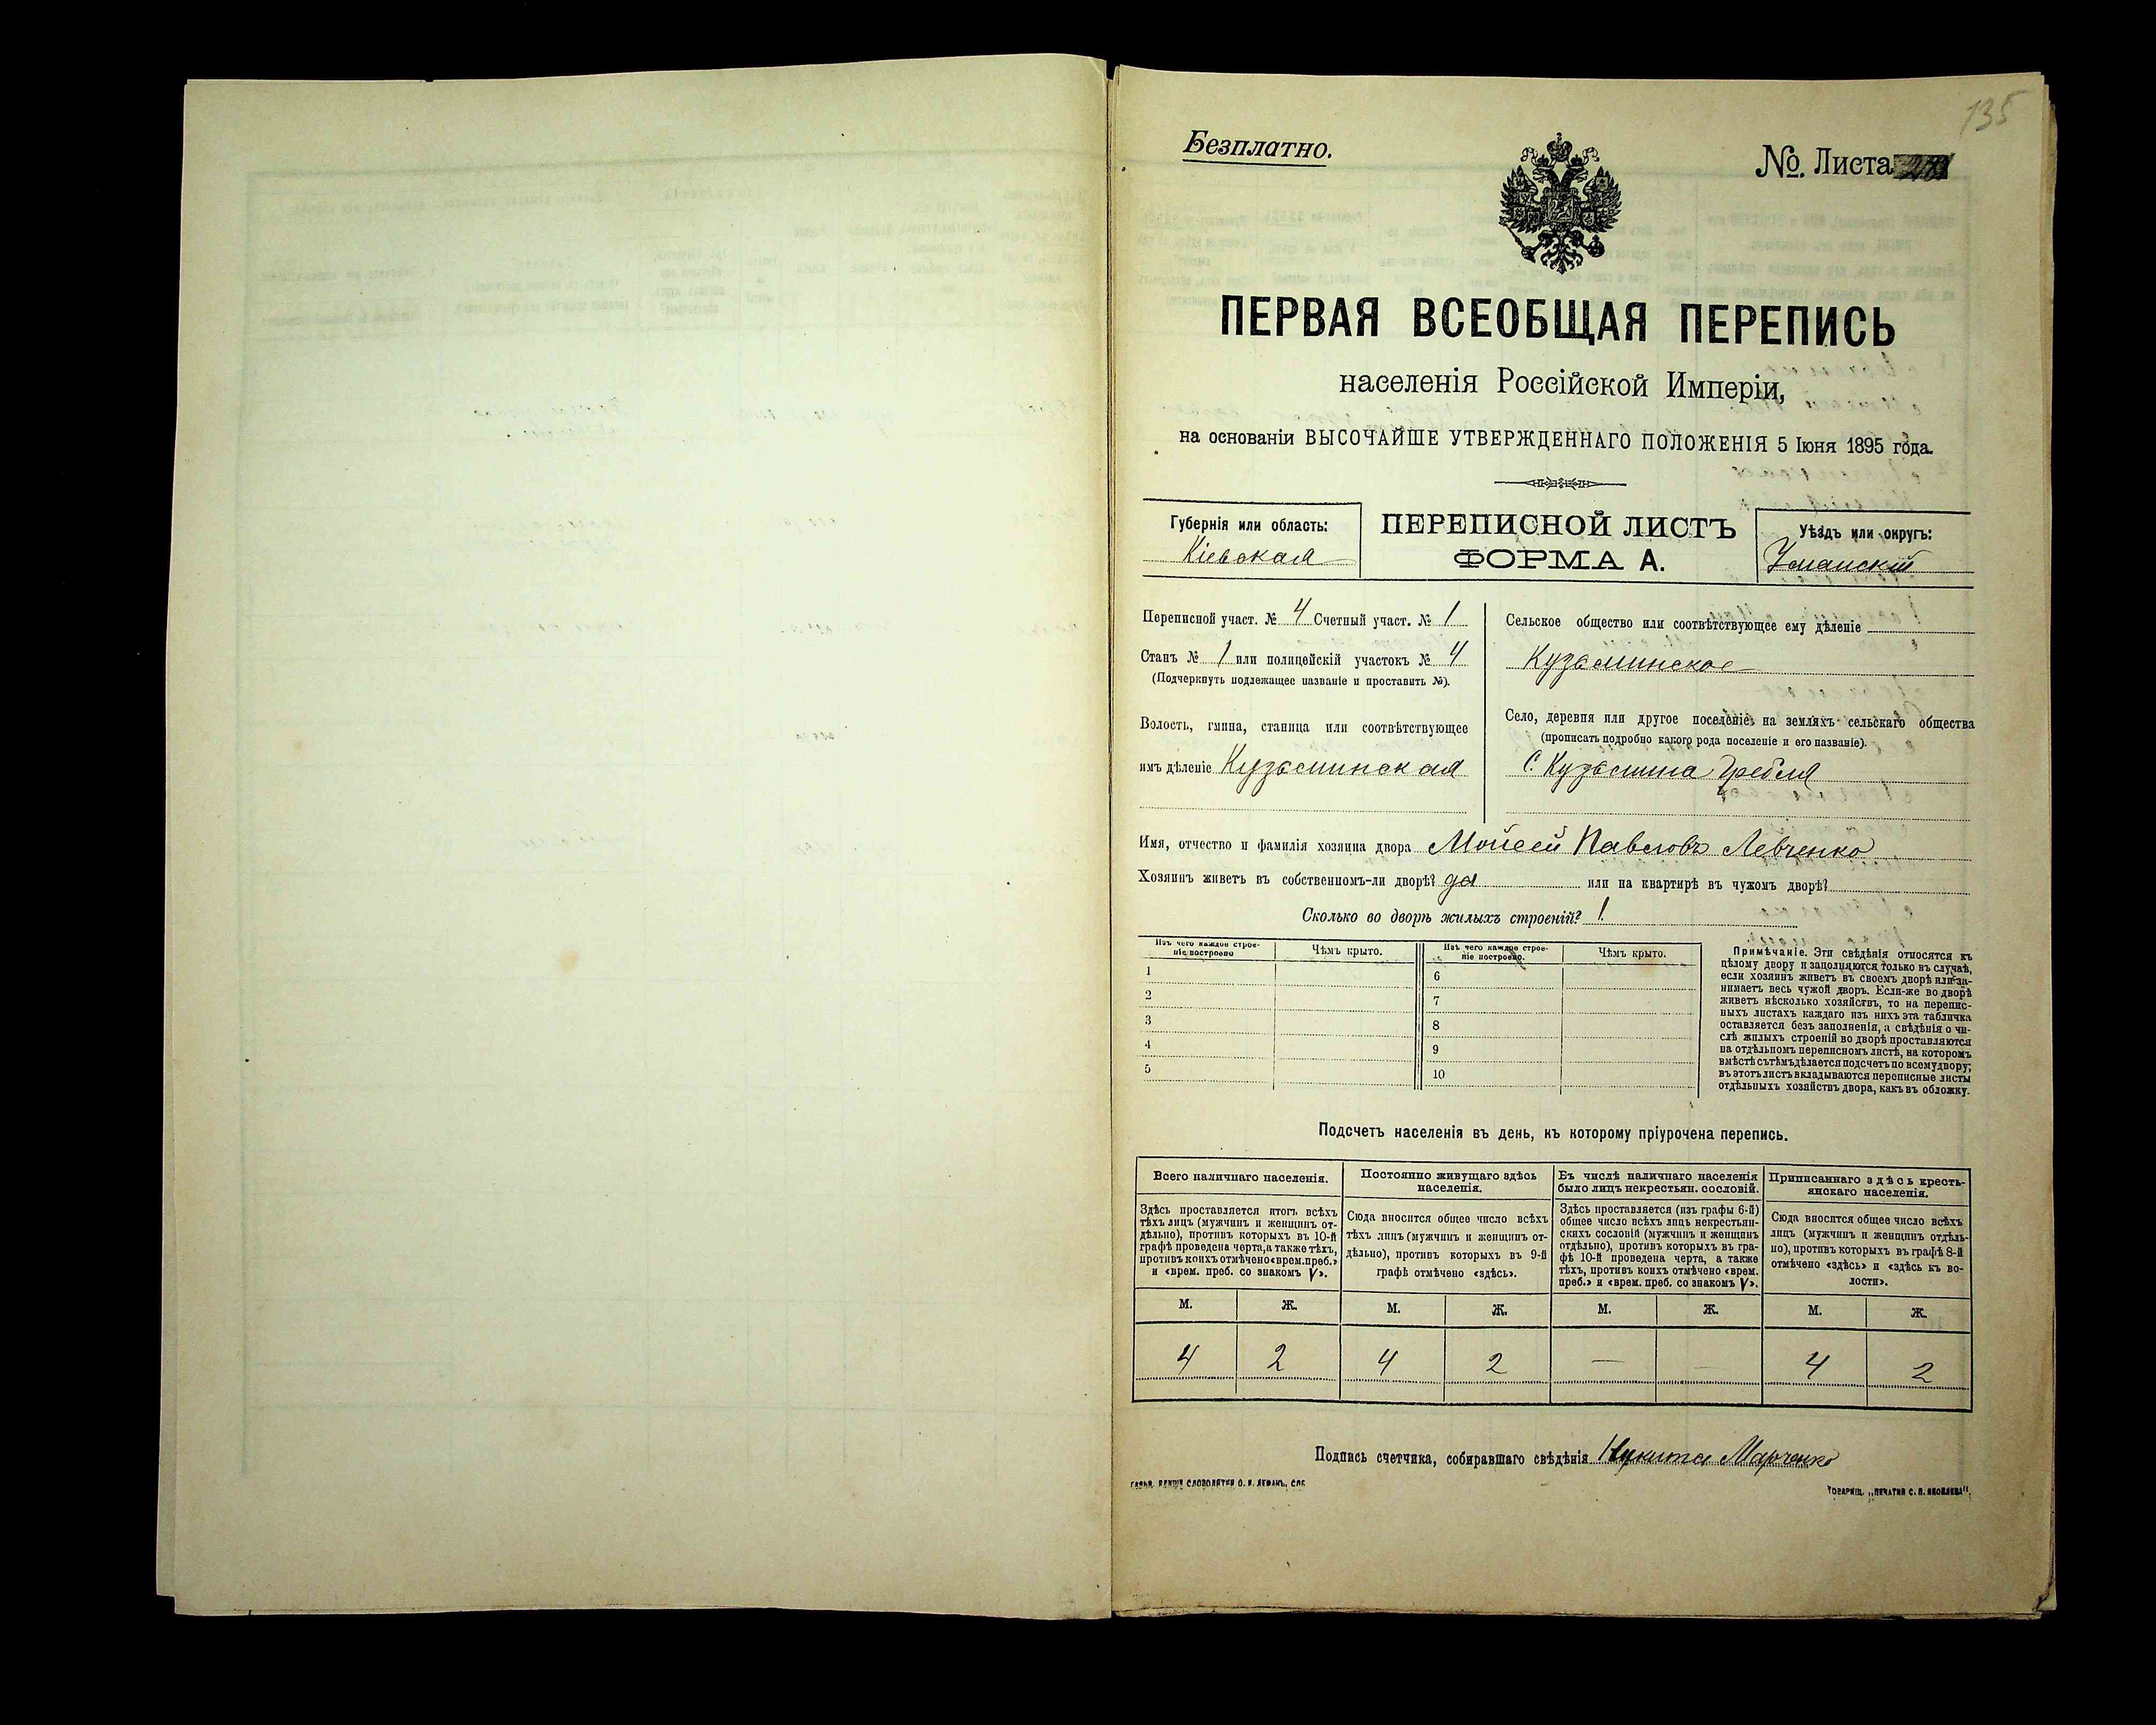 135
Безплатно.
№. Листа
ПЕРВАЯ ВСЕОБЩАЯ ПЕРЕПИСЬ
населенія Россійской Имперіи,
на основаніи ВЫСОЧАЙШЕ УТВЕРЖДЕННАГО ПОЛОЖЕНІЯ 5 Іюня 1895 года.
Губернія или область:
Кіевская
ПЕРЕПИСНОЙ ЛИСТЪ
ФОРМА А.
Уѣздъ или округъ:
Уманскій
Переписной участ. № 4 Счетный участ. № 1
Станъ № 1 или полицейскій участокъ № 4
(Подчеркнуть подлежащее названіе и проставить №).
Волость, гмина, станица или соотвѣтствующее
имъ дѣленіе Кузьминская
Сельское общество или соотвѣтствующее ему дѣленіе
Кузьминское
Село, деревня или другое поселеніе на земляхъ сельскаго общества
(прописать подробно какого рода поселеніе и его названіе).
С. Кузьмина Гребля
Имя, отчество и фамилія хозяина двора Мойсей Павловъ Левченко
Хозяинъ живетъ въ собственномъ-ли дворѣ? да или на квартирѣ въ чужомъ дворѣ?
Сколько во дворѣ жилыхъ строеній? 1.
Изъ чего каждое строе-
ніе построено
Чѣмъ крыто.
Изъ чего каждое строе-
ніе построено.
Чѣмъ крыто.
1
2
3
4
5
6
7
8
9
10
Примѣчаніе. Эти свѣдѣнія относятся къ
цѣлому двору и заполняются только въ случаѣ,
если хозяинъ живетъ въ своемъ дворѣ или за-
нимаетъ весь чужой дворъ. Если-же во дворѣ
живетъ нѣсколько хозяйствъ, то на перепис-
ныхъ листахъ каждаго изъ нихъ эта табличка
оставляется безъ заполненія, а свѣдѣнія о чи-
слѣ жилыхъ строеній во дворѣ проставляются
на отдѣльномъ переписномъ листѣ, на которомъ
вмѣстѣ съ тѣмъ дѣлается подсчетъ по всему двору;
въ этотъ листъ вкладываются переписные листы
отдѣльныхъ хозяйствъ двора, какъ въ обложку.
Подсчетъ населенія въ день, къ которому пріурочена перепись.
Всего наличнаго населенія.
Здѣсь проставляется итогъ всѣхъ
тѣхъ лицъ (мужчинъ и женщинъ от-
дѣльно), противъ которыхъ въ 10-й
графѣ проведена черта, а также тѣхъ,
противъ коихъ отмѣчено «врем. преб.»
и «врем. преб. со знакомъ V».
Постоянно живущаго здѣсь
населенія.
Сюда вносится общее число всѣхъ
тѣхъ лицъ (мужчинъ и женщинъ от-
дѣльно), противъ которыхъ въ 9-й
графѣ отмѣчено «здѣсь».
Въ числѣ наличнаго населенія
было лицъ некрестьян. сословій.
Здѣсь проставляется (изъ графы 6-й)
общее число всѣхъ лицъ некрестьян-
скихъ сословій (мужчинъ и женщинъ
отдѣльно), противъ которыхъ въ гра-
фѣ 10-й проведена черта, а также
тѣхъ, противъ коихъ отмѣчено «врем.
преб.» и «врем. преб. со знакомъ V».
Приписаннаго здѣсь кресть-
янскаго населенія.
Сюда вносится общее число всѣхъ
лицъ (мужчинъ и женщинъ отдѣль-
но), противъ которыхъ въ графѣ 8-й
отмѣчено «здѣсь» и «здѣсь къ во-
лости».
М. Ж. М. Ж. М. Ж. М. Ж.
4 2 4 2 — — 4 2
Подпись счетчика, собиравшаго свѣдѣнія Никита Марченко
СЛОВОЛИТНЯ О. И. ЛЕМАНЪ, СПБ.
ТОВАРИЩ. „ПЕЧАТНЯ С. П. ЯКОВЛЕВА“.